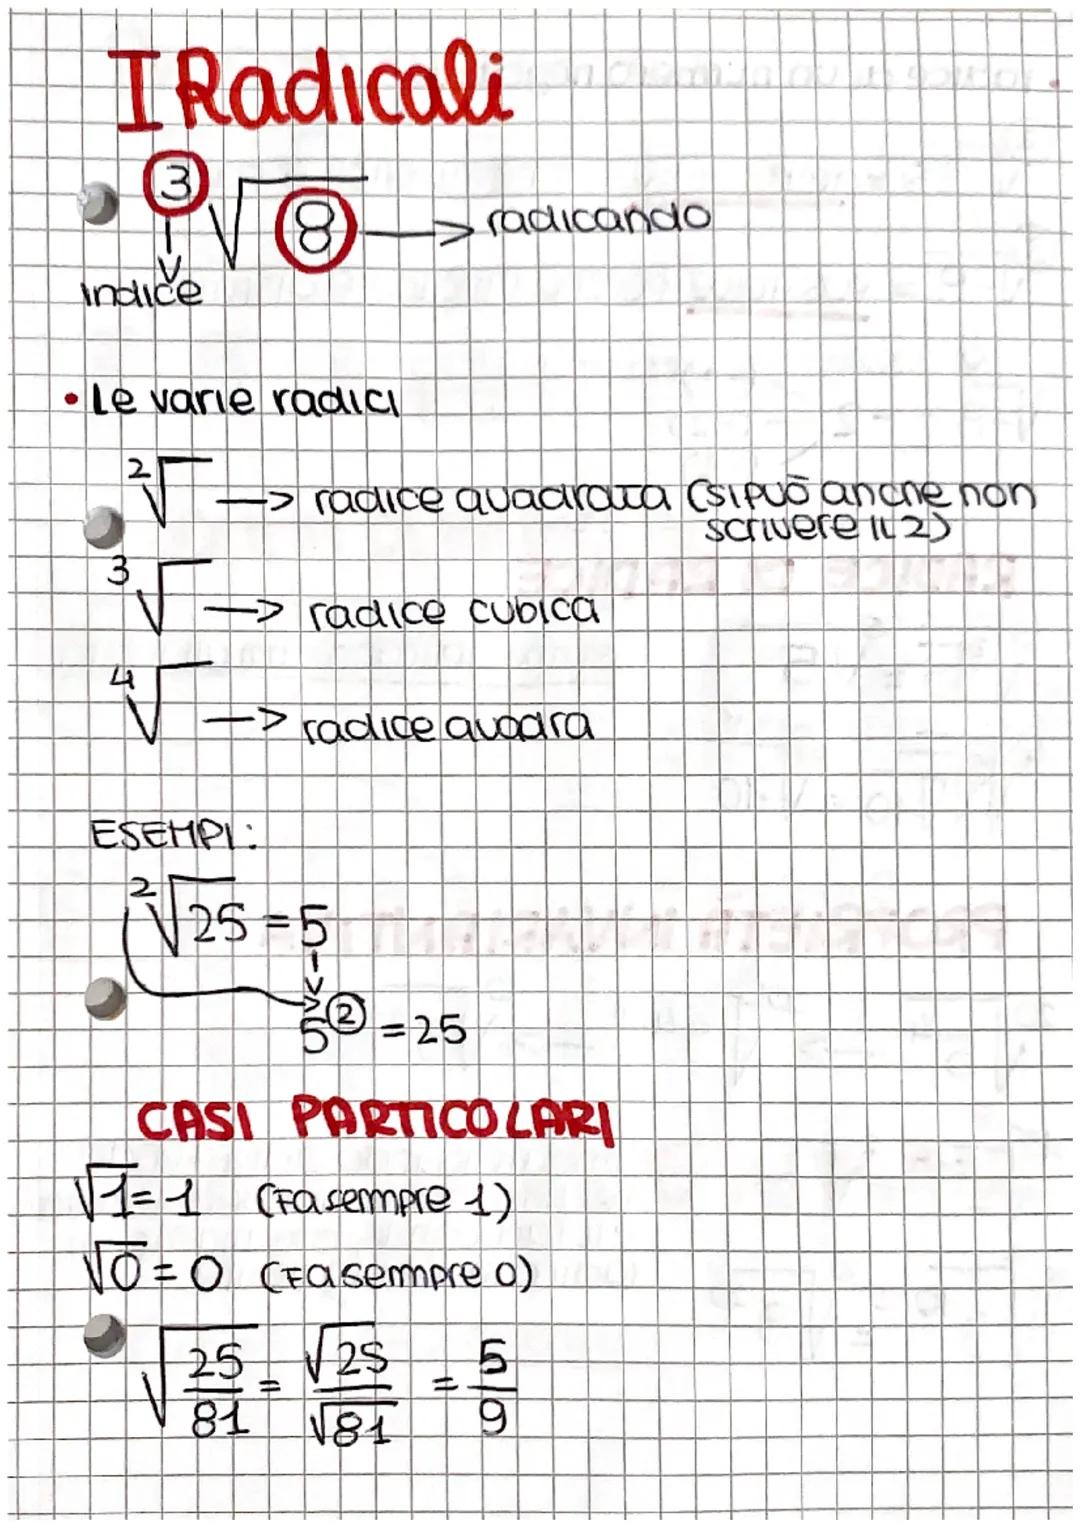 I Radicali
³√8 → radicando
indice
• Le varie radici
²√ → radice quadrata (si può anche non
scrivere il 2)
³√ → radice cubica
⁴√ → radice quadra
ESEMPI:
²√25 = 5
5² = 25
CASI PARTICOLARI
√1 = 1 (Fa sempre 1)
√0 = 0 (Fa sempre 0)
√25/81 = √25/√81 = 5/9